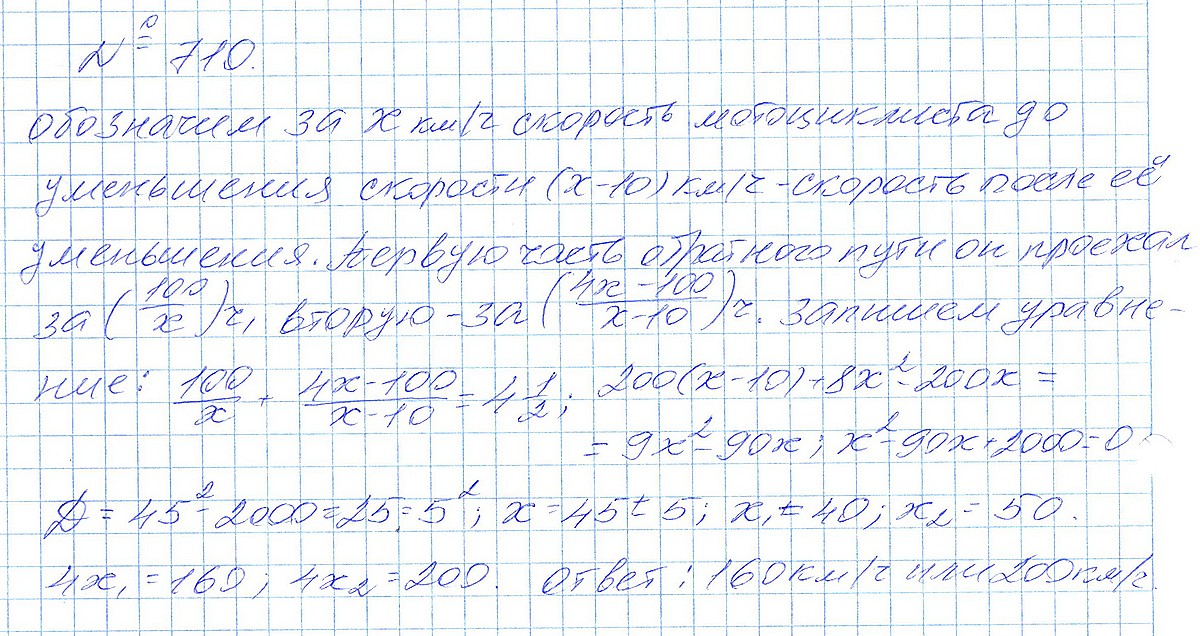 № 710.
Обозначим за x км/ч скорость мотоциклиста до
уменьшения скорости (x-10) км/ч - скорость после её
уменьшения. Первую часть обратного пути он проехал
за (100/x) ч, вторую - за ((4x-100)/(x-10)) ч. Запишем уравне-
ние: 100/x + (4x-100)/(x-10) = 4 1/2; 200(x-10)+8x²-200x =
= 9x²-90x; x²-90x+2000=0
D = 45²-2000=25=5²; x=45±5; x₁=40; x₂=50.
4x₁=160; 4x₂=200. Ответ: 160км/ч или 200км/ч.